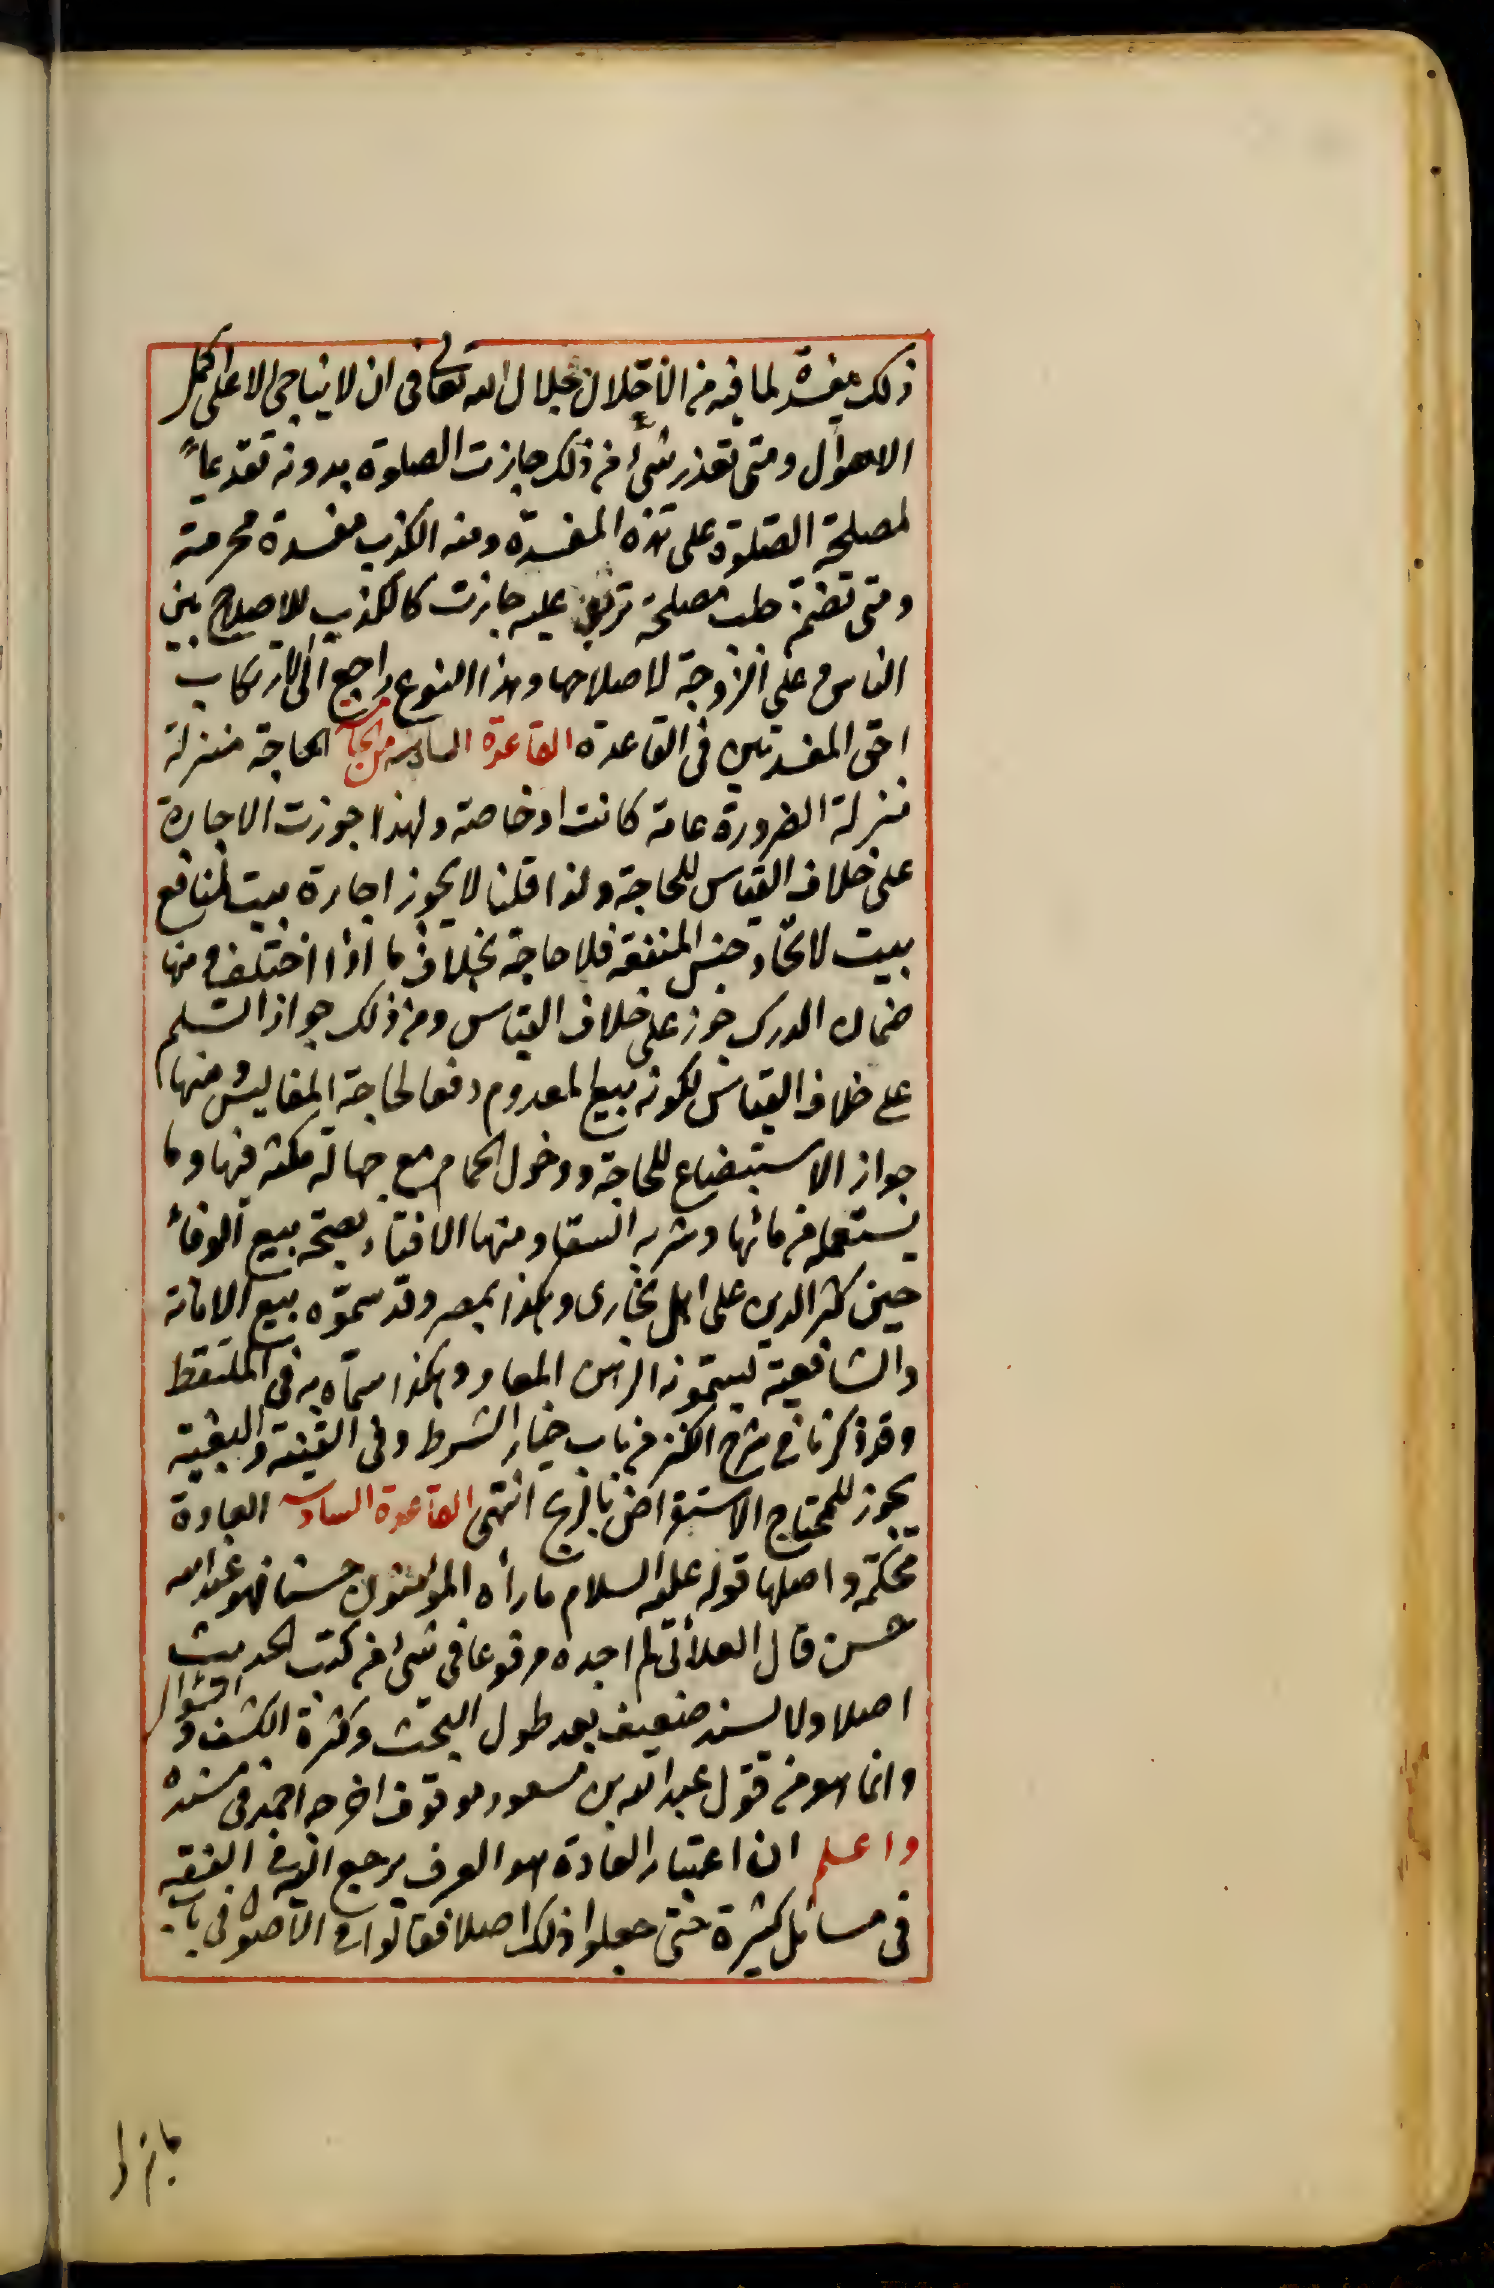 ذلك مفسدة لما فيه من الاخلال بجلال الله تعالى في ان لا يناجى الا على اكمل
الاحوال ومتى تعذر شئ من ذلك جازت الصلوة بدونه تقديماً
لمصلحة الصلوة على هذه المفسدة ومنه الكذب مفسدة محرمة
ومتى تضمن جلب مصلحة تربو عليه جازت كالكذب للاصلاح بين
الناس وعلى الزوجة لاصلاحها وهذا النوع راجع الى ارتكاب
اخف المفسدتين في القاعدة القاعدة السادسة من الخامسة الحاجة منزلة
منزلة الضرورة عامة كانت او خاصة ولهذا جوزت الاجارة
على خلاف القياس للحاجة ولذا قلنا لا يجوز اجارة بيت لمنافع
بيت لاتحاد جنس المنفعة فلا حاجة بخلاف ما اذا اختلف ومنها
ضمان الدرك جوز على خلاف القياس ومن ذلك جواز السلم
على خلاف القياس لكونه بيع المعدوم دفعا لحاجة المفاليس ومنها
جواز الاستبضاع للحاجة ودخول الحمام مع جهالة مكثه فيها وما
يستعمله من مائها وشربه السقا ومنها الافتاء بصحة بيع الوفاء
حين كثر الدين على اهل بخارى وهكذا بمصر وقد سموه بيع الامانة
والشافعية يسمونه الرهن المعاد وهكذا سماه به في الملتقط
وقد ذكرناه في شرح الكنز من باب خيار الشرط وفي القنية والبغية
يجوز للمحتاج الاستقراض بالربح انتهى القاعدة السادسة العادة
محكمة واصلها قوله عليه السلام ما رأه المؤمنون حسنا فهو عند الله
حسن قال العلائى لم اجده مرفوعا في شئ من كتب الحديث
اصلا ولا بسند ضعيف بعد طول البحث وكثرة الكشف والسؤال
وانما هو من قول عبد الله بن مسعود موقوف اخرجه احمد في مسنده
واعلم ان اعتبار العادة هو العرف يرجع اليه في الفقه
في مسائل كثيرة حتى جعلوا ذلك اصلا فقالوا في الاصول في باب